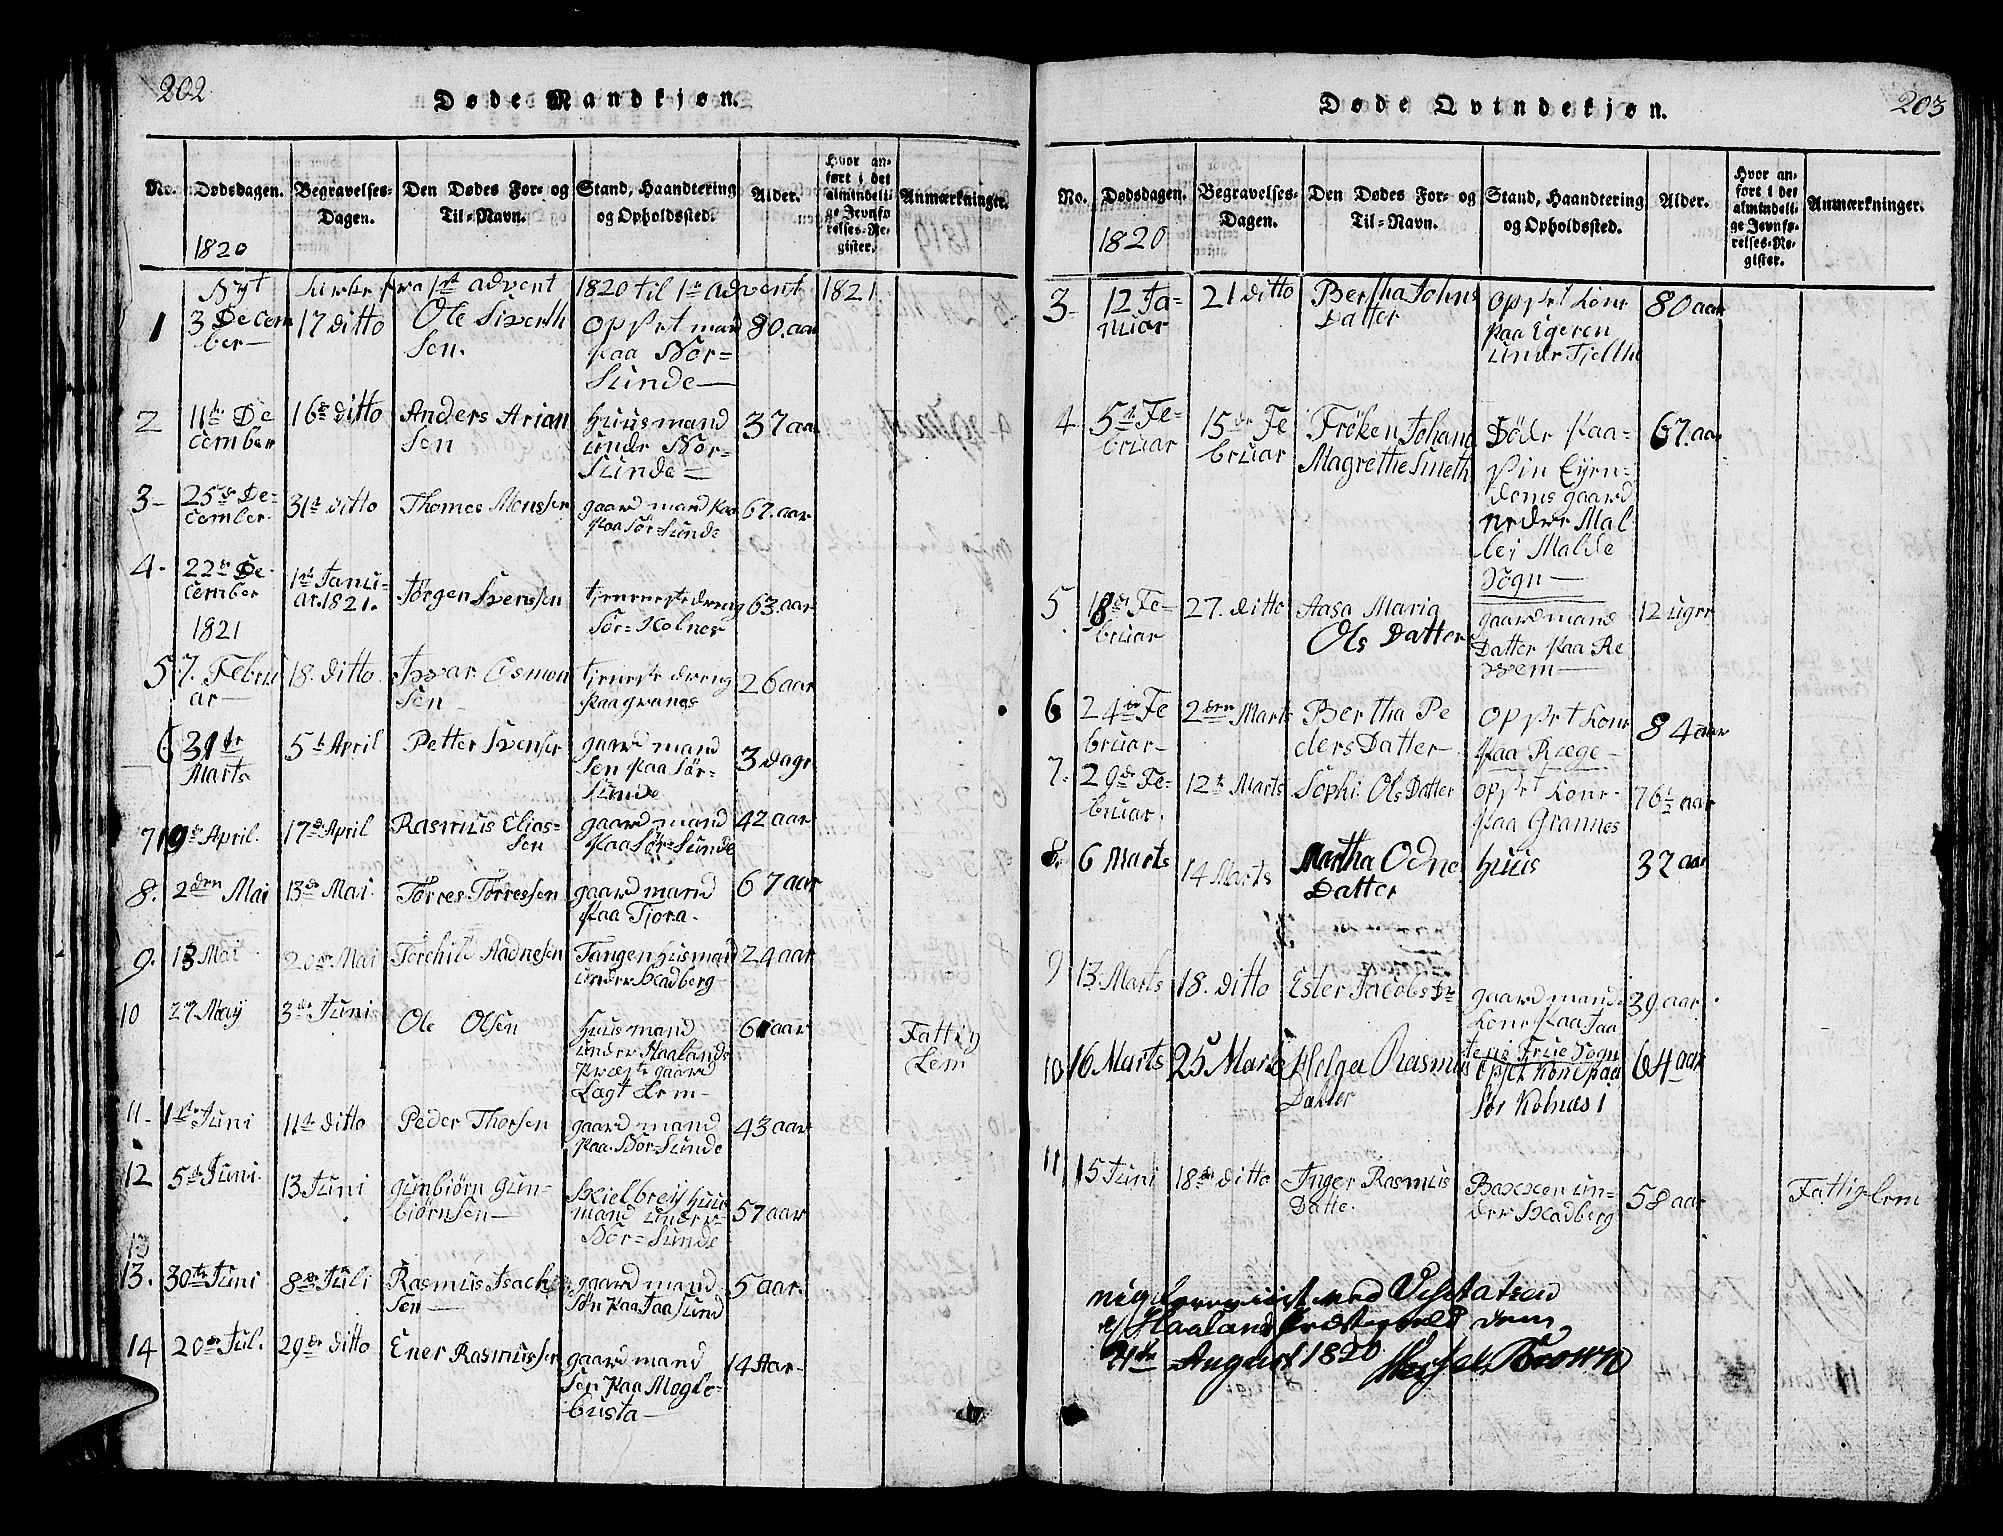 202
Døde Mandkjøn.
No.
Dødsdagen.
Begravelses-
Dagen.
Den Dødes For- og
Til-Navn.
Stand, Haandtering
og Opholdssted.
Alder.
Hvor an-
ført i det
almindeli-
ge Jevnfø-
relses-Re-
gister.
Anmærkninger.
1820
Nyt Kirke fra 1ste advent 1820 til 1ste advent 1821
1
3 Decem
ber
17 ditto
Ole Siverth
Sen.
Opset mand
paa Nor-
Sunde
80. aar
2
11te De
cember
16de ditto
Anders Arian
Sen
Huusmand
under Nor-
Sunde
37 aar
3
25de De-
cember
31te ditto
Thomes Monssen
gaard mand paa
paa Sør=Sunde
67. aar
4
22de De-
cember
1ste Janu-
ar. 1821.
Jørgen Svensen
tjenneste dreng
Sør-Kolnes
63. aar
1821
5
7. Febru
ar
18. ditto
Ivar Osmon
Sen
tjeneste dreng
paa granes
26 aar
6
31te
Marts
5te April
Petter Svensen
gaard mand
Sen paa Sør-
Sunde
3 dage
7
19de April.
17de April
Rasmus Elias-
Sen
gaard mand
paa Sør-Sunde
42 aar
8.
2den Mai
13de Mai
Torres Torressen
gaard mand
paa Tjora
67 aar
9.
13 Mai
20de Mai
Torchild Aadnesen
Tangen husmand
under Skadberg
24 aar
10
27 May
3de Juni
Ole Olsen
Huusmand
under Haalands
Præste gaard
Lagt Lem
61 aar
Fattig
Lem
11
1ste Juni
11te ditto
Peder Thorsen
gaard mand
paa Nor-Sunde
43 aar
12
5te Juni
13 Juni
Gunbiørn Gun-
biørnsen
Skielbrey Huus
mand under
Nor-Sunde
57 aar
13
13.
30te Juni
8de Juli
Rasmus Isach
Sen
gaard mand
Søn paa Jaasund
5 aar.
14
20de Jul.
29de ditto
Ener Rasmussen
gaard mand
Sen paa Mogle-
busta
14 Aar
203
Døde Qvindekjøn.
No.
Dødsdagen.
Begravelses-
Dagen.
Den Dødes For- og
Til-Navn.
Stand, Haandtering
og Opholdssted.
Alder.
Hvor an-
ført i det
almindeli-
ge Jevnfø-
relses-Re-
gister.
Anmærkninger.
1820
3
12 Ja-
nuar
21 ditto
Bertha Johns
Datter
Opset Kone
paa Egeren
under Tjelthe
80 aar
4
5te Fe-
bruar
15de Fe
bruar
Frøken Johana
Magrethe Smeth
Døde paa
Sin Eyen-
doms gaard
neder Mal
lei Malde
Sogn
67. aar
5
18de Fe-
bruar
27. ditto
Aasa Maria
Ols Datter
gaardmand
Datter paa Re
vem
12 uger
6
24de Fe
bruar
2den Marts
Bertha Pe
ders Datter
Opset Kone
paa Ræge
84 aar
7.
29de Fe-
bruar.
12te Marts
Sophi Ols Datter
opset Kone
paa Grannes
76½ aar
8.
6 Marts
14 Marts
Martha Odne
Datter
Huus
32 aar
9
13. Marts
18. ditto
Ester Jacobs Dr
gaard mands
Kone paa Jaa
tens Frue Sogn
39. aar
10
16 Marts
25 Marts
Helga Rasmus
Datter
Opset Kone paa
Sør Kolnæs
64 aar
11
15 Juni
18de ditto
Inger Rasmus
Datte.
Baxxen un-
der Skadberg
58 aar
Fattig-Lem
ved Visitatsen
i Haaland Præstegield den
21te August 1820
Brown